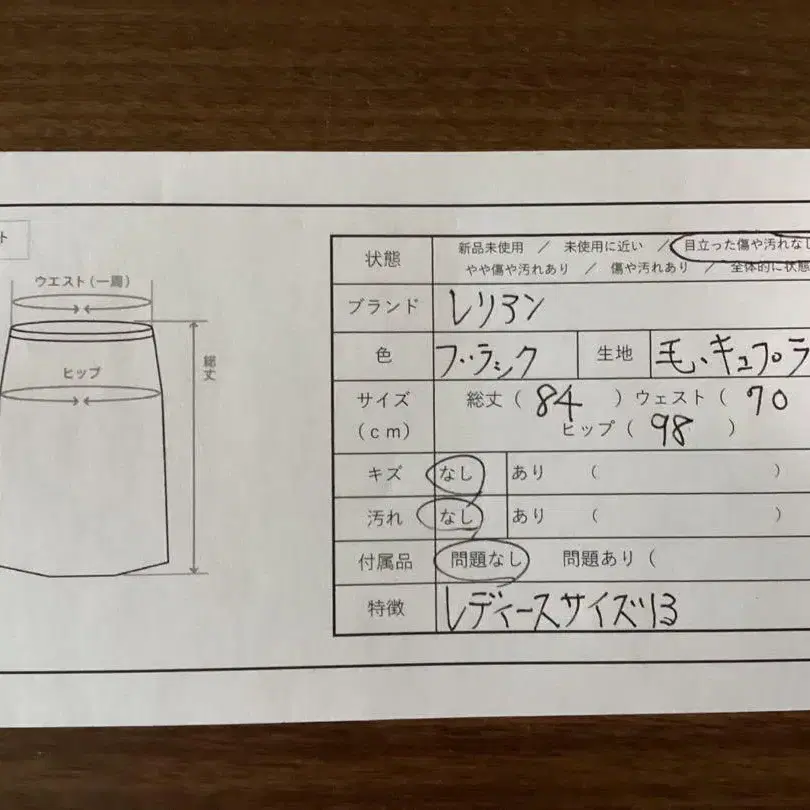 ト
ウエスト(一周)
ヒップ
総丈
状態 新品未使用 / 未使用に近い / 目立った傷や汚れなし
やや傷や汚れあり / 傷や汚れあり / 全体的に状態
ブランド レリアン
色 ブラック 生地 毛、キュプラ
サイズ(cm) 総丈( 84 ) ウェスト( 70
ヒップ( 98 )
キズ なし あり ( )
汚れ なし あり ( )
付属品 問題なし 問題あり(
特徴 レディースサイズ13